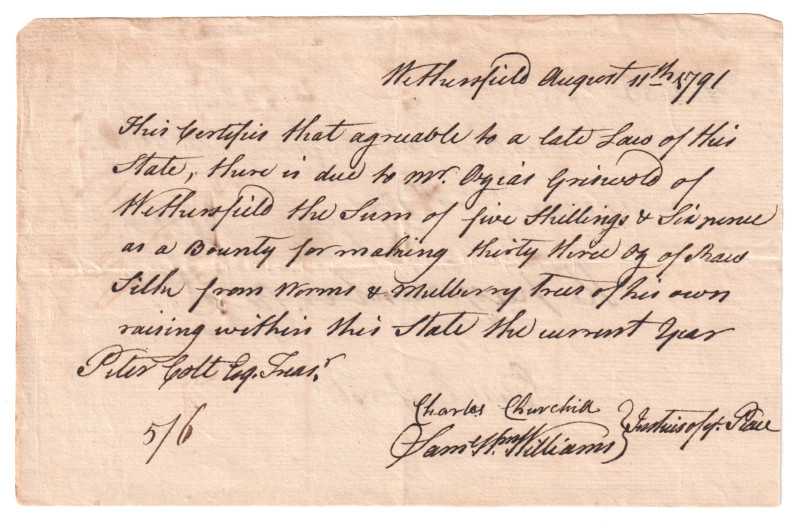 Wethersfield August 11th 1791
This Certifies that agreable to a late Law of this
State, there is due to Mr. Ozias Griswold of
Wethersfield the Sum of five Shillings & Six pence
as a Bounty for making thirty three Oz of Raw
Silk from Worms & Mulberry Trees of his own
raising within this State the current Year
Peter Colt Esq. Treasr.
5/6
Charles Churchill
Saml. Wm. Williams } Justices of ye. Peace